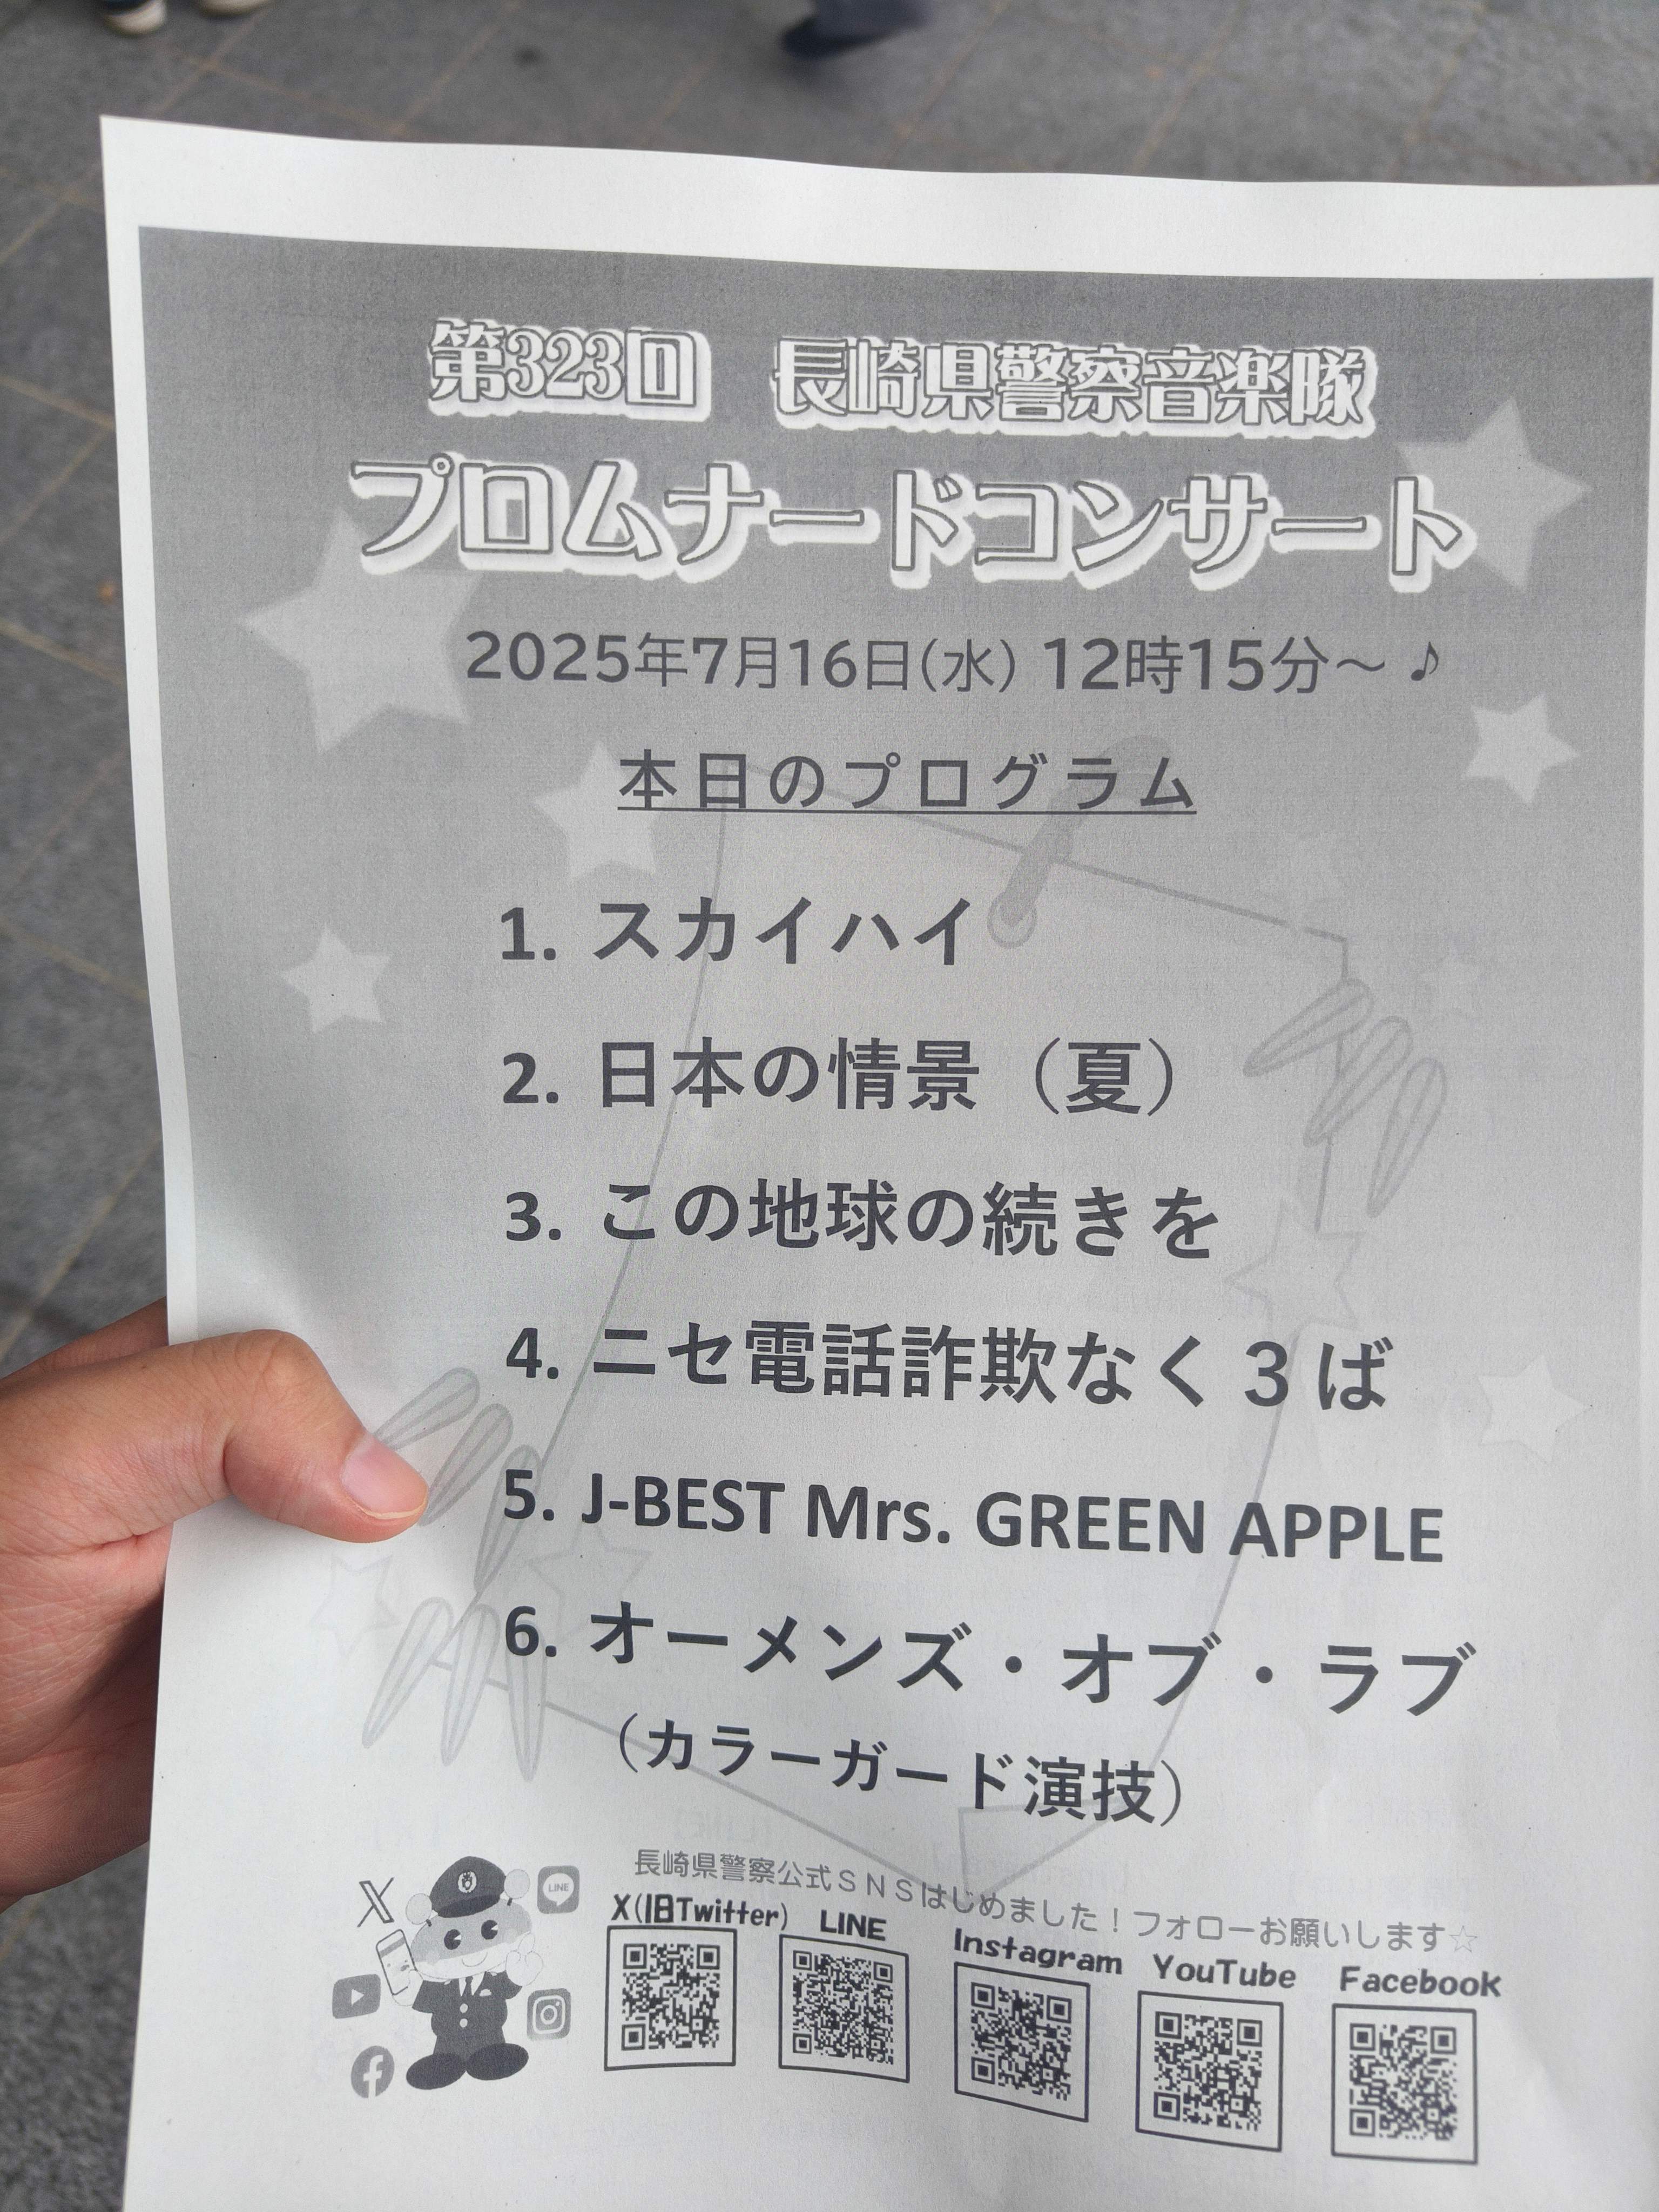 第323回　長崎県警察音楽隊
プロムナードコンサート
2025年7月16日(水) 12時15分～♪
本日のプログラム
1. スカイハイ
2. 日本の情景（夏）
3. この地球の続きを
4. ニセ電話詐欺なく３ば
5. J-BEST Mrs. GREEN APPLE
6. オーメンズ・オブ・ラブ
（カラーガード演技）
長崎県警察公式ＳＮＳはじめました！フォローお願いします☆
X(旧Twitter) LINE Instagram YouTube Facebook
X
LINE